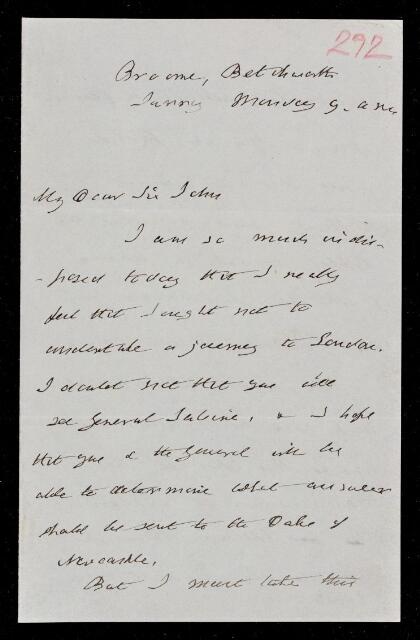 292
Broome, Betchworth
Surrey Monday 9. a.m
My Dear Sir John
I am so much indis-
-posed today that I really
feel that I ought not to
undertake a journey to London.
I doubt not that you will
see General Sabine, & I hope
that you & the General will be
able to determine what answer
should be sent to the Duke of
Newcastle.
But I must take this